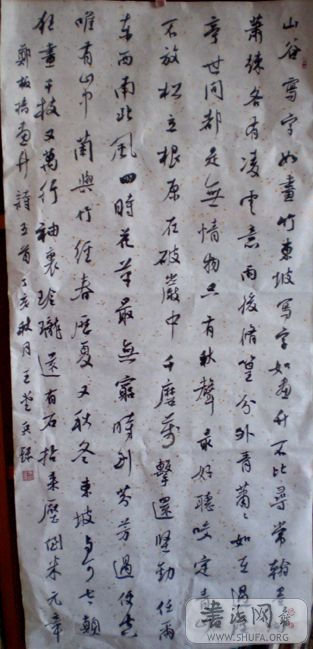 山谷寫字如畫竹東坡寫字如画竹不比尋常翰墨
萧疎各有凌雲意雨後脩篁分外青蕭蕭如在過
亭世間都是無情物只有秋聲最好聽咬定青
不放松立根原在破巖中千磨萬擊還堅勁任爾
东西南北風四時花草最無窮時到芬芳過便空
唯有山中蘭與竹經春歷夏又秋冬東坡與可太顛
狂畫千枝又萬行袖裏玲瓏還有石拈來壓倒米元章
鄭板橋画竹詩五首丁亥秋月王英録
书法网
WWW.SHUFA.ORG